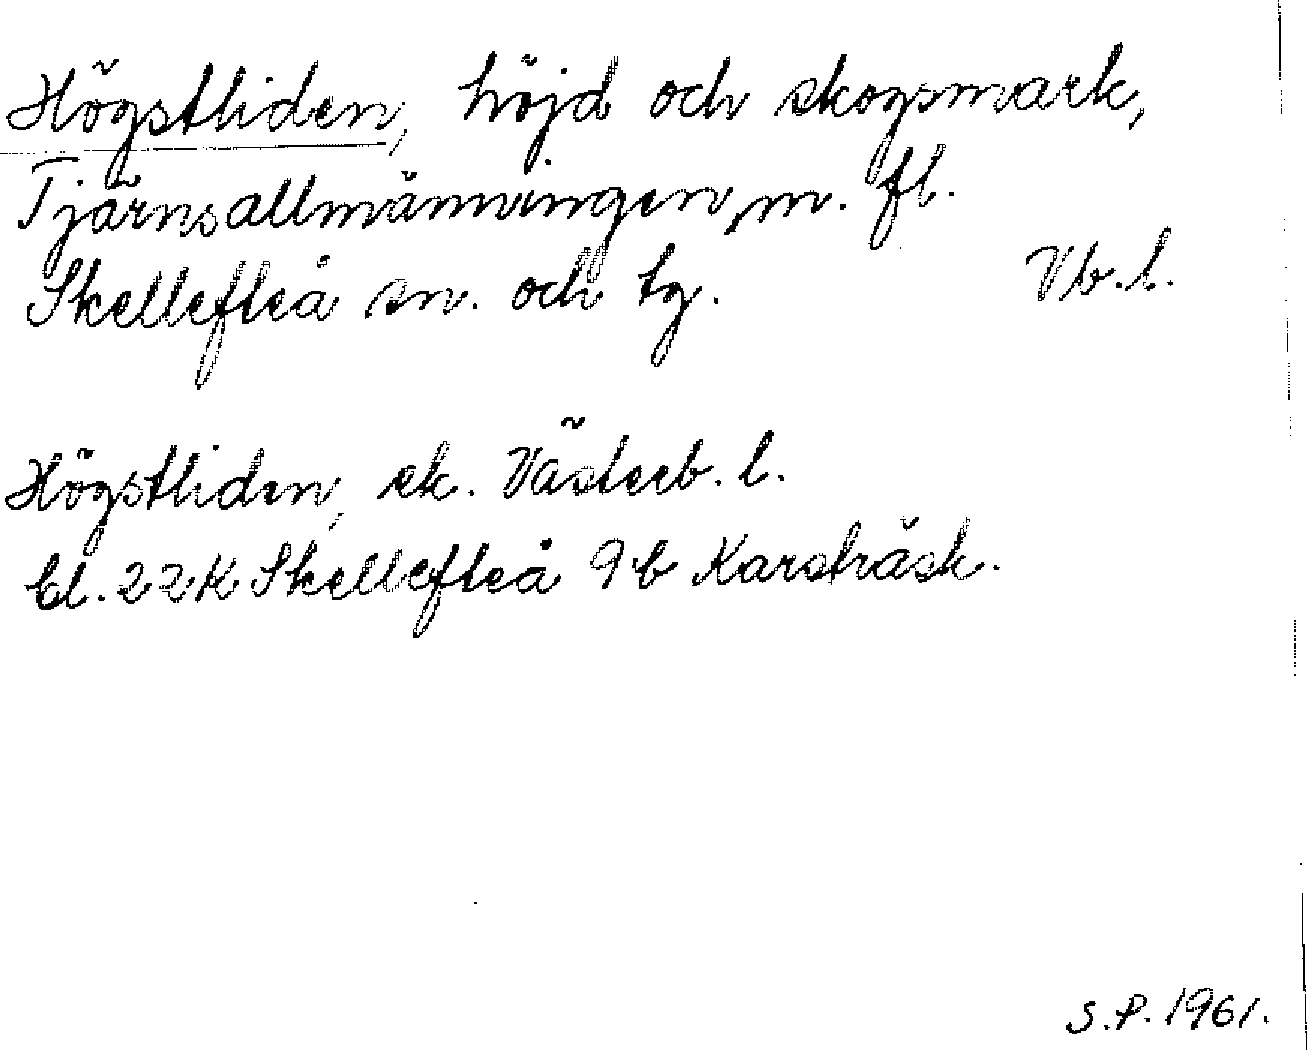 Högstliden, höjd och skogsmark,
Tjärnsallmänningen, m. fl.
Skellefteå sn. och tg. Vb. l.
Högstliden, ek. Västerb. l.
bl. 22 K Skellefteå 9 b Karsträsk.
S. P. 1961.